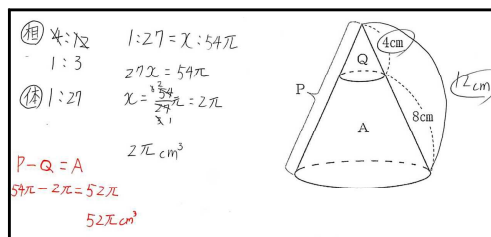 相 4:12
1:3
体 1:27
1:27=x:54π
27x=54π
x=54/27π=2π
2πcm³
P-Q=A
54π-2π=52π
52πcm³
P
Q
A
4cm
8cm
12cm